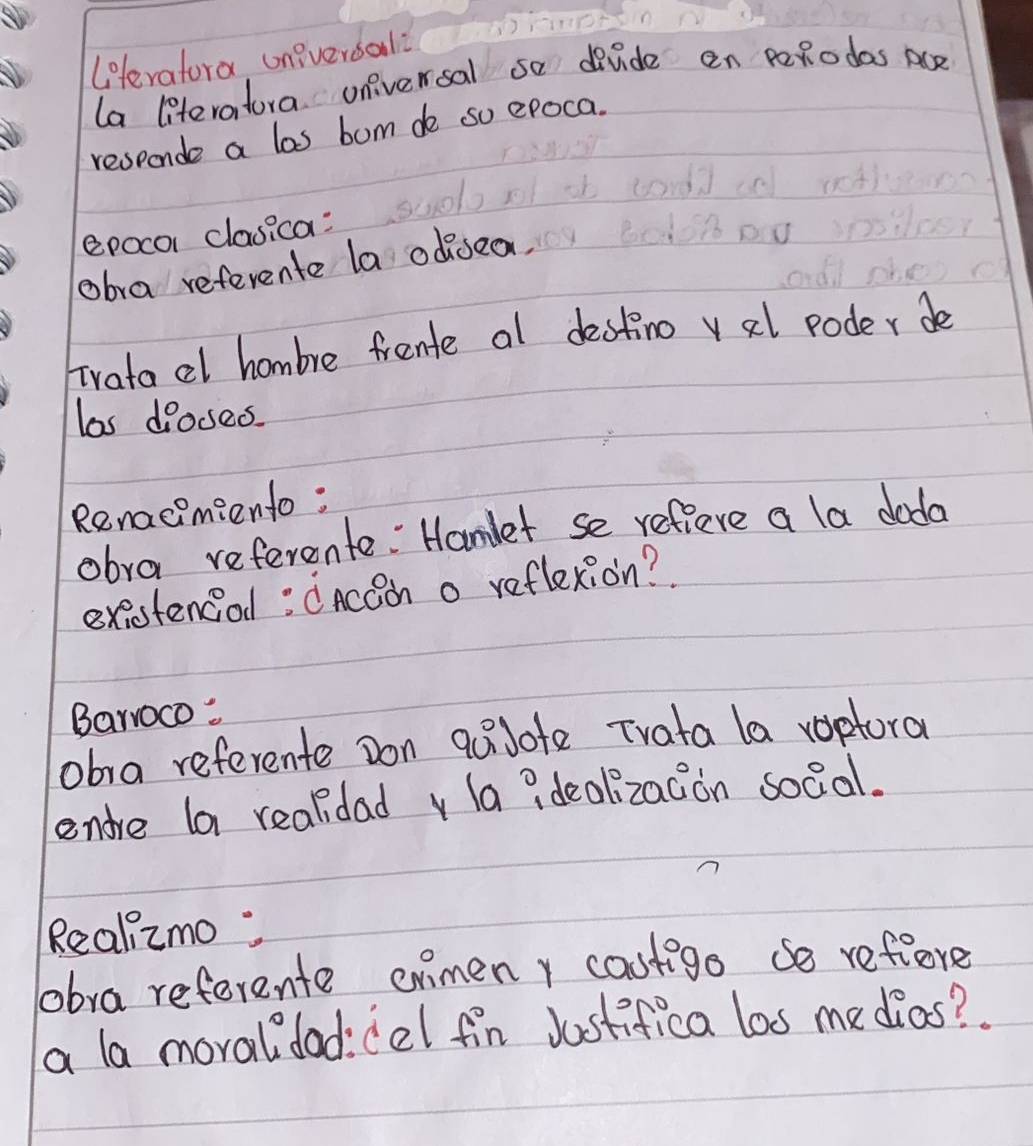 Literatura universal:
la literatura universal se divide en periodos que
responde a las bom de su epoca.
epoca clasica:
obra referente la odisea.
Trata el hombre frente al destino y el poder de
los dioses.
Renacimiento:
obra referente: Hamlet se refiere a la duda
existencial: ¿Acción o reflexión?
Barroco:
obra referente Don quijote Trata la roptura
entre la realidad y la idealización social.
Realizmo:
obra referente crimen y castigo se refiere
a la moralidad: ¿el fin Justifica los medios?.